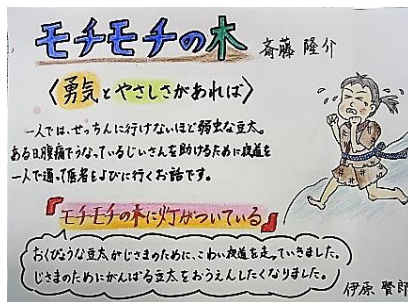 モチモチの木 斎藤 隆介
〈勇気とやさしさがあれば〉
一人では、せっちんに行けないほど弱虫な豆太。
ある日腹痛でうなっているじいさんを助けるために夜道を
一人で通って医者をよびに行くお話です。
『モチモチの木に灯がついている』
おくびょうな豆太がじさまのために、こわい夜道を走っていきました。
じさまのためにがんばる豆太をおうえんしたくなりました。
伊原 賢郎